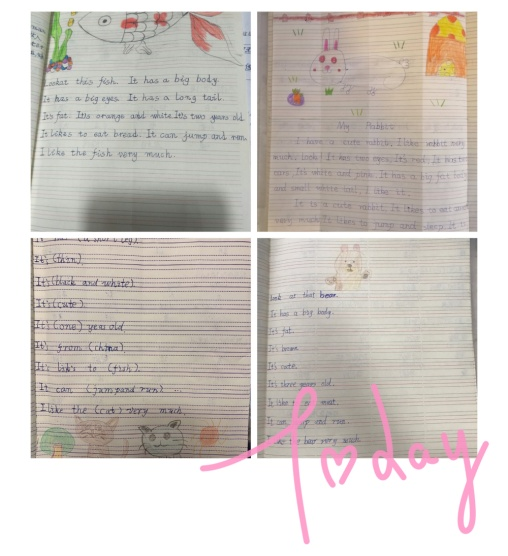 Lookat this fish. It has a big body.
It has a big eyes. It has a long tail.
It's fat. It's orange and white. It's two years old
It likes to eat bread. It can jump and run.
I like the fish very much.
My Rabbit
I have a cute rabbit. I like rabbit very
much. Look! It has two eyes. It's red. It has two
ears. It's white and pink. It has a big fat body
and small white tail. I like it.
It is a cute rabbit. It likes to eat
very much. It likes to jump and sleep. It is
It's (thin).
It's (black and white).
It's (cute).
It's (one) years old
It's from (china)
It's likes to (fish).
It can (jump and run) ...
I like the (cat) very much.
look at that bear.
It has a big body.
It's fat.
It's brown.
It's cute.
It's three years old.
It like meat.
It can and run.
the bear very much.
Today